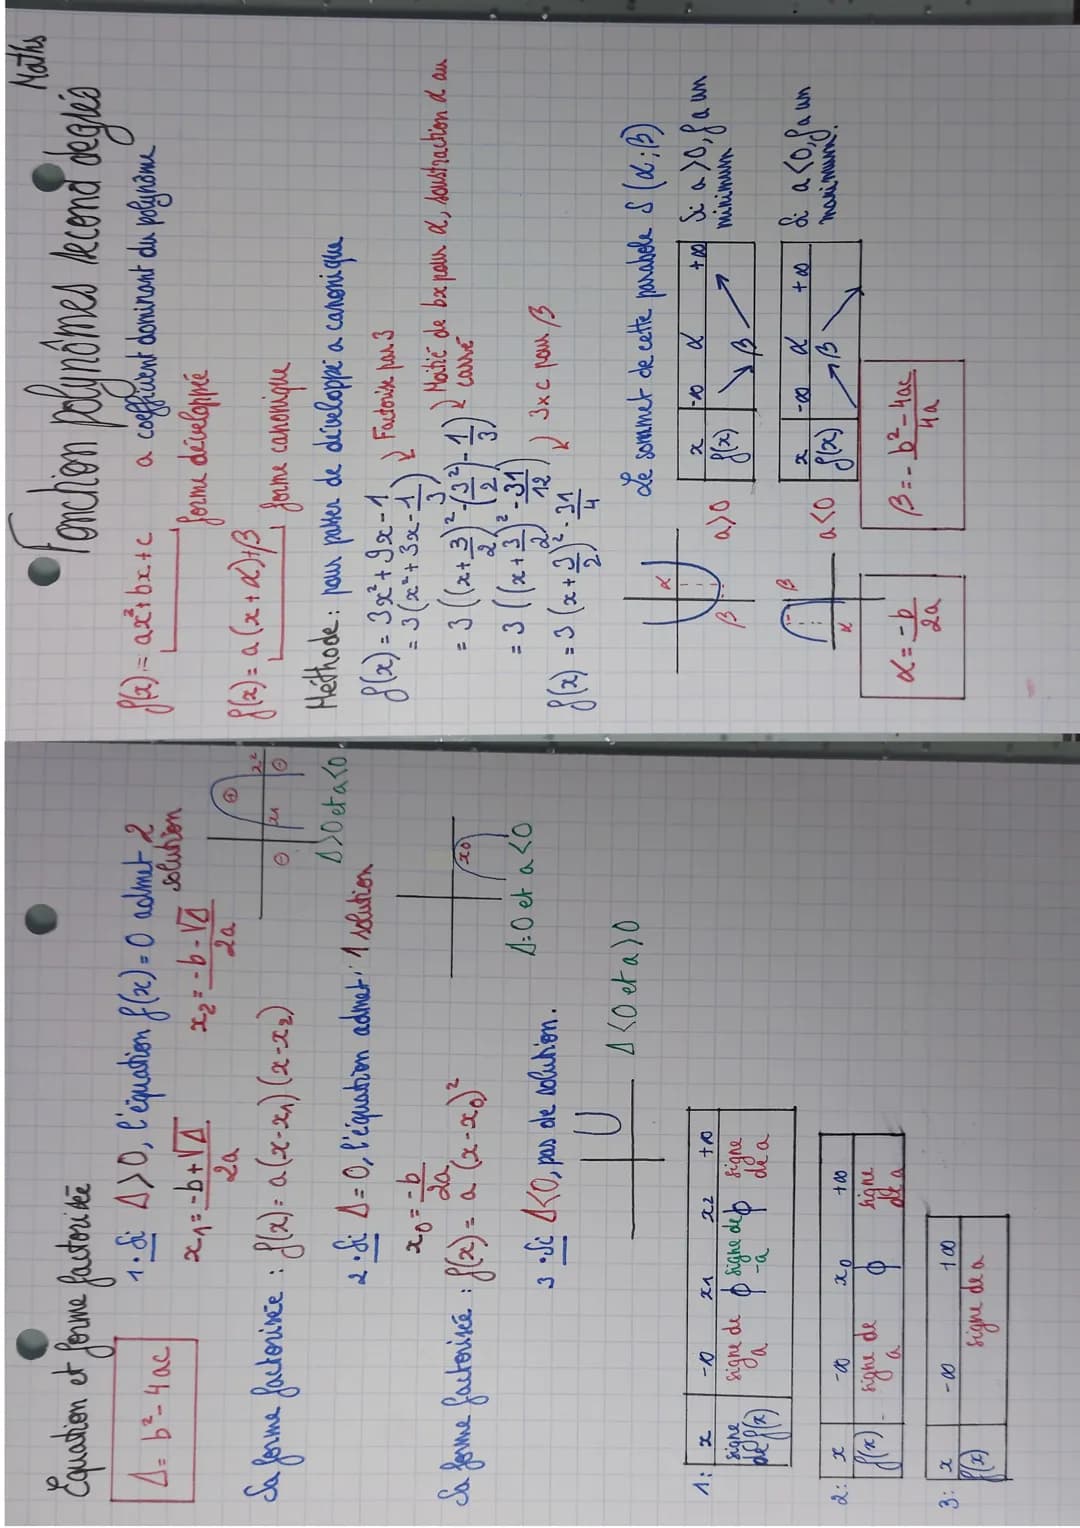 Maths
Fonction polynômes second degrés
f(x) = ax²+bx+c a coefficient dominant du polynôme
forme développé
f(x) = a(x+α)+β
forme canonique
Méthode : pour passer de développé a canonique
f(x) = 3x²+9x-1
= 3(x²+3x-1/3) ↓ Factorise par 3
= 3((x+3/2)²-(3²/2)-1/3) ↓ Moitié de bx pour α, soustraction α au carré
= 3((x+3/2)²-31/12)
f(x) = 3(x+3/2)²-31/4 ↓ 3xc pour β
Le sommet de cette parabole S(α;β)
α
β
a>0
x -∞ α +∞
f(x) β
Si a>0, f a un minimum
β
α
a<0
x -∞ α +∞
f(x) β
Si a<0, f a un maximum.
α = -b/2a
β = -b²-4ac/4a
Équation et forme factorisée
Δ = b²-4ac
1. Si Δ>0, l'équation f(x)=0 admet 2 solution
x₁ = -b+√Δ/2a x₂ = -b-√Δ/2a
Sa forme factorisée : f(x) = a(x-x₁)(x-x₂)
⊖ x1 ⊕ x2 ⊖
Δ>0 et a<0
2. Si Δ=0, l'équation admet 1 solution
x₀ = -b/2a
Sa forme factorisé : f(x) = a(x-x₀)²
x0
Δ=0 et a<0
3. Si Δ<0, pas de solution.
Δ<0 et a>0
1: x -∞ x1 x2 +∞
signe de f(x) signe de a 0 signe de -a 0 signe de a
2: x -∞ x0 +∞
f(x) signe de a 0 signe de a
3: x -∞ +∞
f(x) signe de a